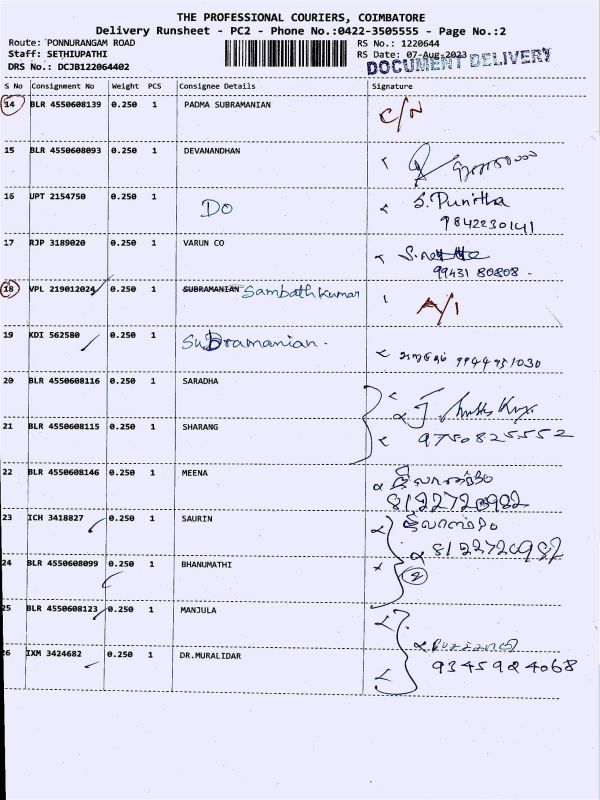 THE PROFESSIONAL COURIERS, COIMBATORE
Delivery Runsheet - PC2 - Phone No.:0422-3505555 - Page No.:2
Route: PONNURANGAM ROAD RS No.: 1220644
Staff: SETHIUPATHI RS Date: 07-Aug-2023
DRS No.: DCJB122064402 DOCUMENT DELIVERY
S No Consignment No Weight PCS Consignee Details Signature
14 BLR 4550608139 0.250 1 PADMA SUBRAMANIAN C/N
15 BLR 4550608093 0.250 1 DEVANANDHAN
16 UPT 2154750 0.250 1 Do S. Punitha
9842230141
17 RJP 3189020 0.250 1 VARUN CO
99431 80808.
18 VPL 219012024 0.250 1 SUBRAMANIAN Sambath Kumar A/1
19 KDI 562580 0.250 1 Subramanian.
9944951030
20 BLR 4550608116 0.250 1 SARADHA
21 BLR 4550608115 0.250 1 SHARANG 9750825552
22 BLR 4550608146 0.250 1 MEENA
23 ICH 3418827 0.250 1 SAURIN
8122720982
24 BLR 4550608099 0.250 1 BHANUMATHI 2
25 BLR 4550608123 0.250 1 MANJULA
26 IXM 3424682 0.250 1 DR.MURALIDAR
9345924068